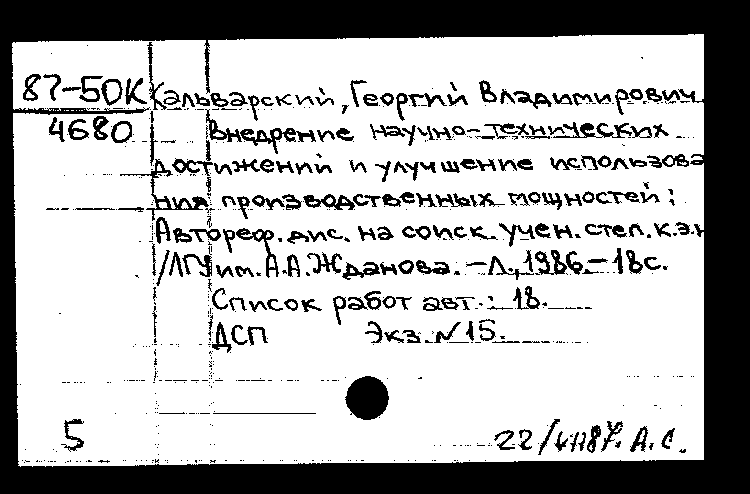 87-50К Кальварский, Георгий Владимирович.
4680 Внедрение научно-технических
достижений и улучшение использова
ния производственных мощностей:
Автореф. дис. на соиск. учен. степ. к.э.н
/ЛГУ им. А.А.Жданова. -Л., 1986.-18с.
Список работ авт.: 18.
ДСП Экз. N 15.
5 А.С.